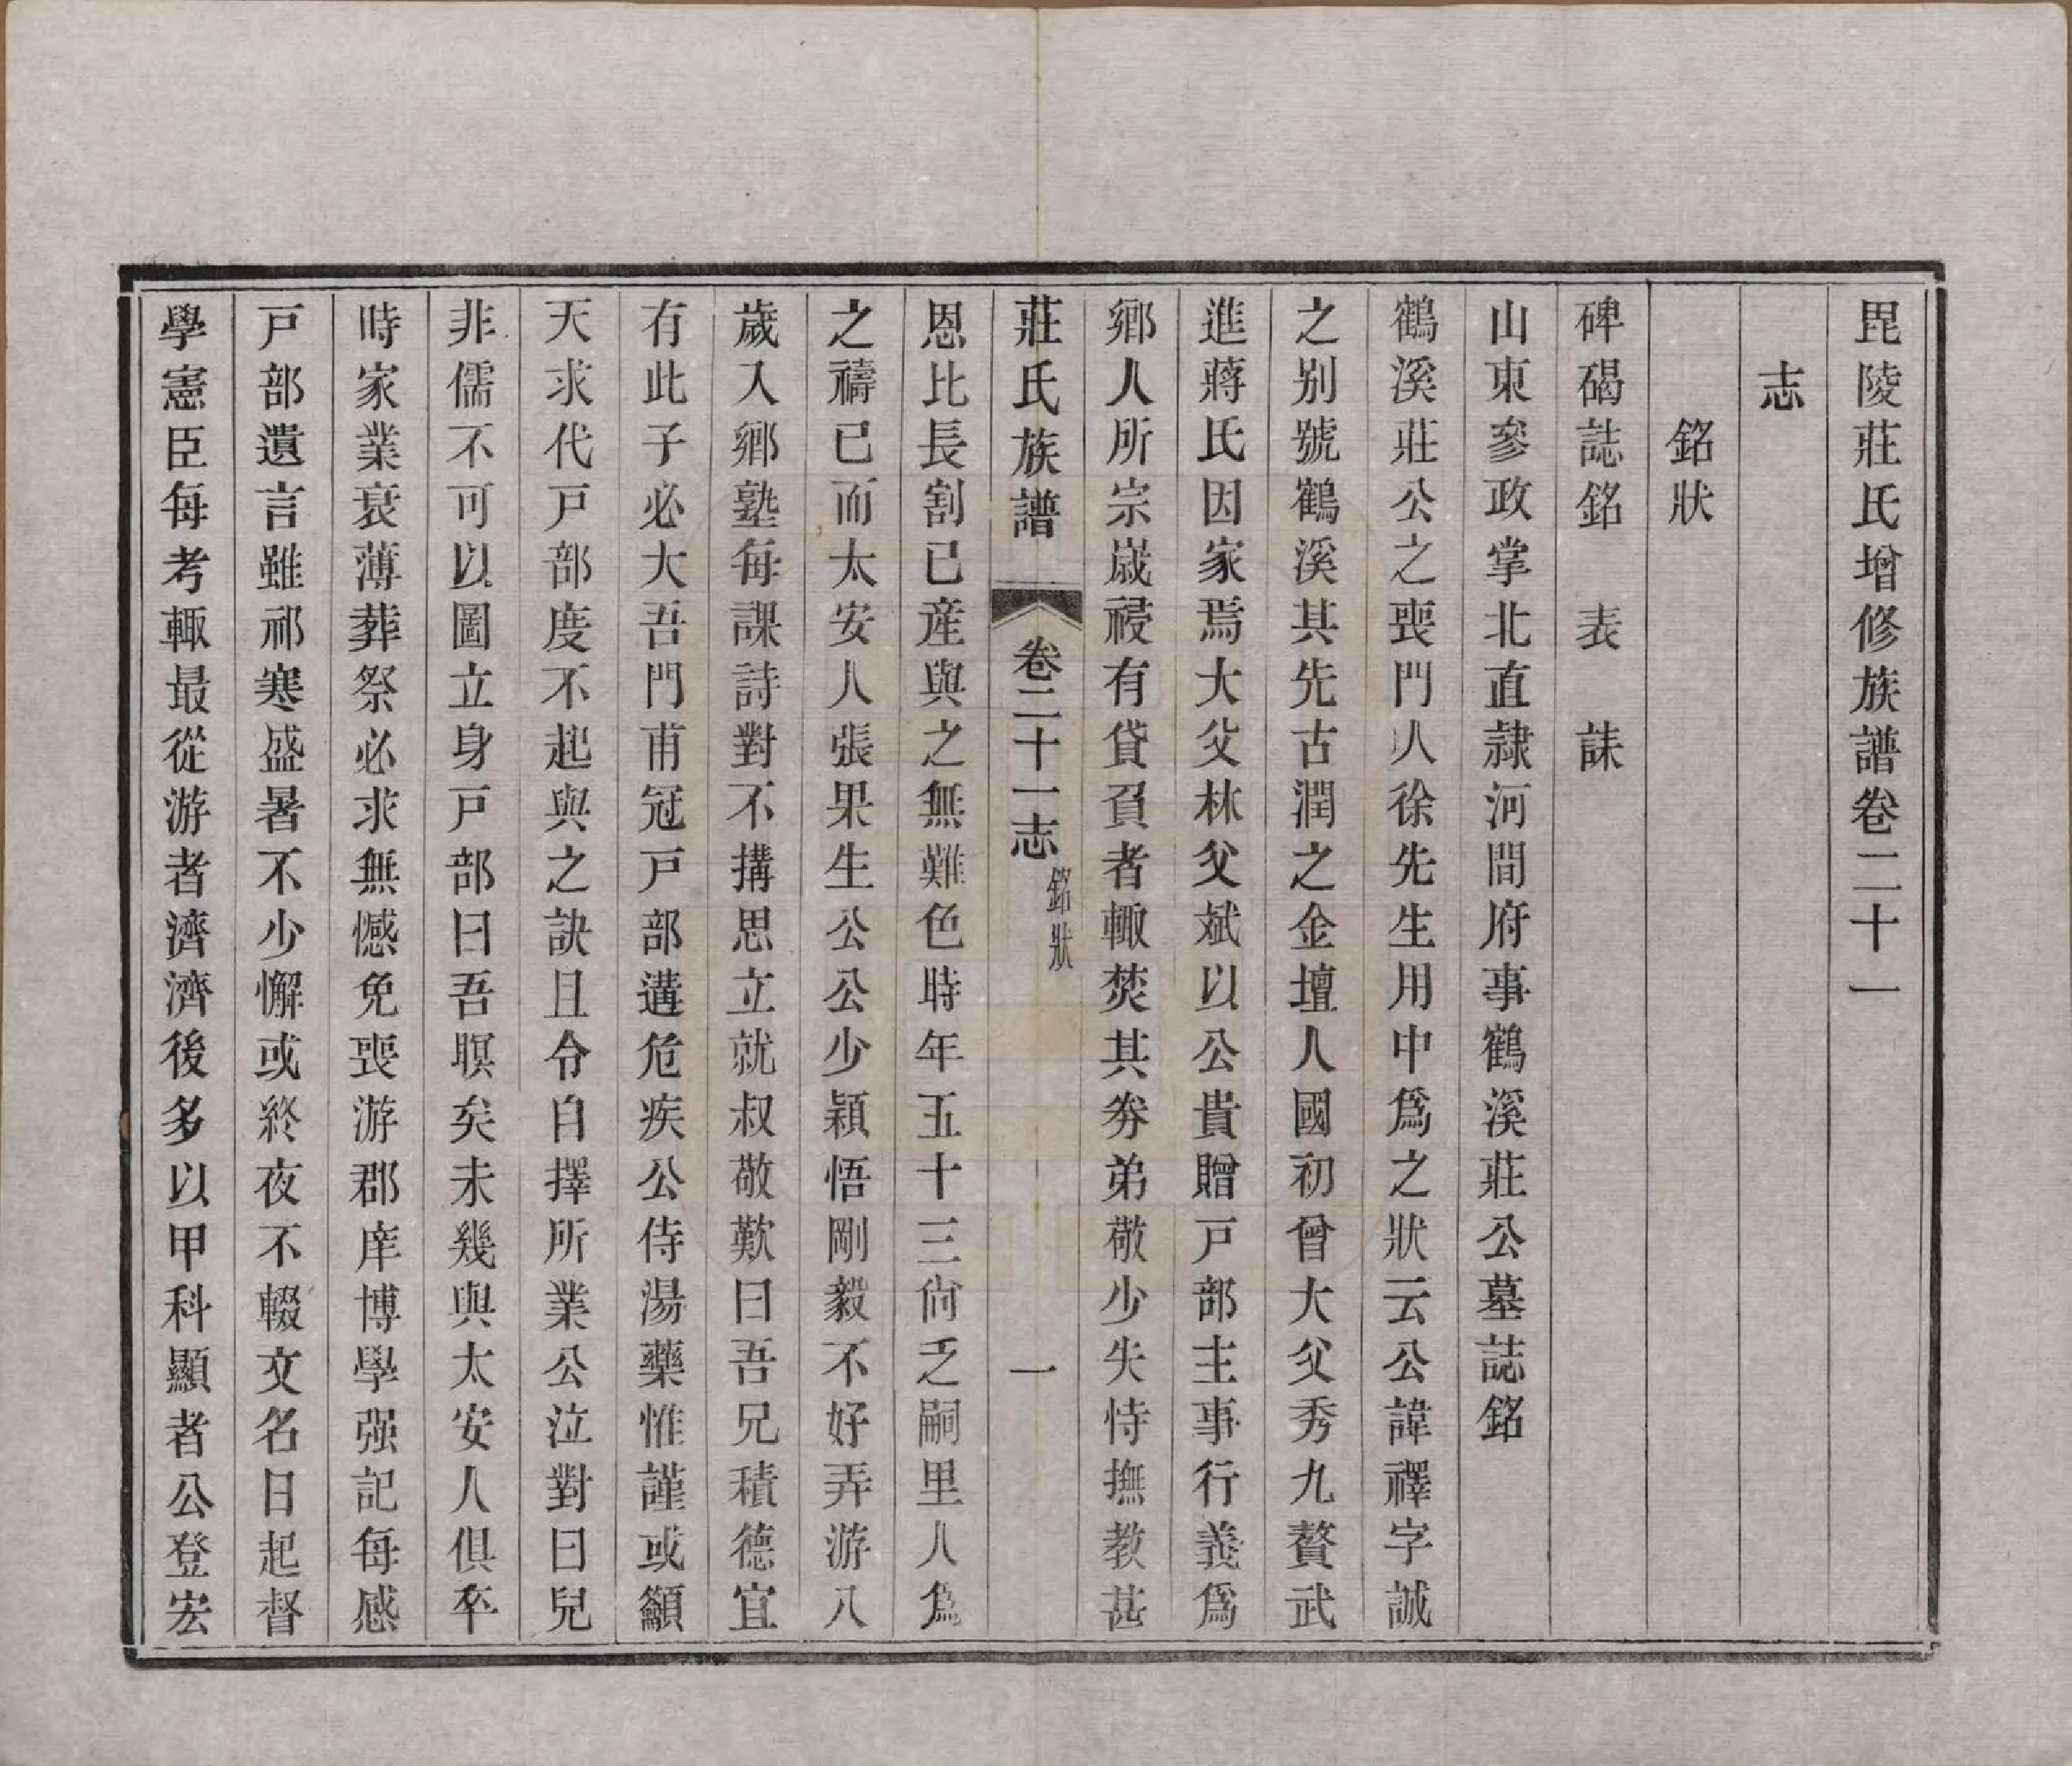 毘陵莊氏增修族譜卷二十一
志
銘狀
碑碣誌銘　表　誄
山東參政掌北直隷河間府事鶴溪莊公墓誌銘
鶴溪莊公之喪門人徐先生用中爲之狀云公諱禪字誠
之别號鶴溪其先古潤之金壇人國初曾大父秀九贅武
進蔣氏因家焉大父林父斌以公貴贈戸部主事行義爲
鄉人所宗歲祲有貸負者輙焚其劵弟敬少失恃撫教甚
莊氏族譜　卷二十一志　銘狀　一
恩比長割已產與之無難色時年五十三尙乏嗣里人爲
之禱已而太安人張果生公公少穎悟剛毅不好弄游八
歲入鄉塾每課詩對不搆思立就叔敬歎曰吾兄積德宜
有此子必大吾門甫冠戸部遘危疾公侍湯藥惟謹或籲
天求代戸部度不起與之訣且令自擇所業公泣對曰兒
非儒不可以圖立身戸部曰吾瞑矣未幾與太安人俱卒
時家業衰薄葬祭必求無憾免喪游郡庠博學强記每感
戸部遺言雖祁寒盛暑不少懈或終夜不輟文名日起督
學憲臣每考輙最從游者濟濟後多以甲科顯者公登宏